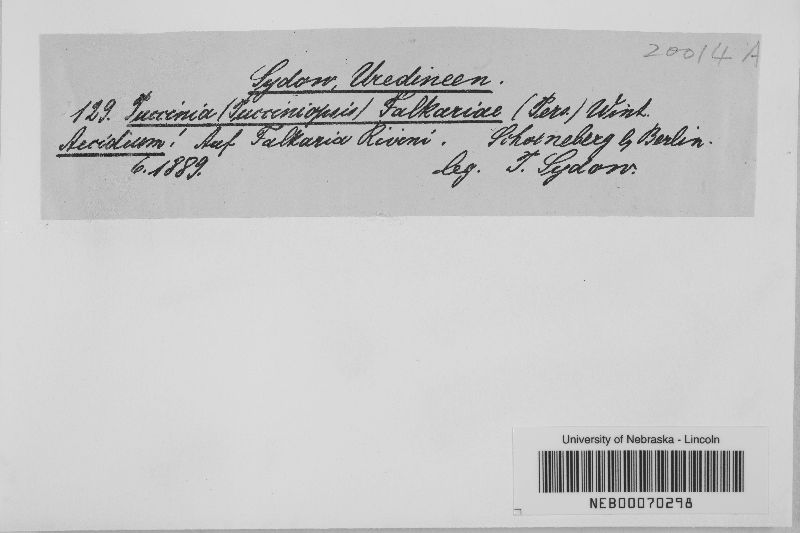 20014 A
Sydow, Uredineen.
129. Puccinia (Pucciniopsis) Falkariae (Pers.) Wint.
Aecidium! Auf Falkaria Rivini. Schoeneberg b/ Berlin.
6. 1889. leg. P. Sydow.
University of Nebraska - Lincoln
NEB00070298